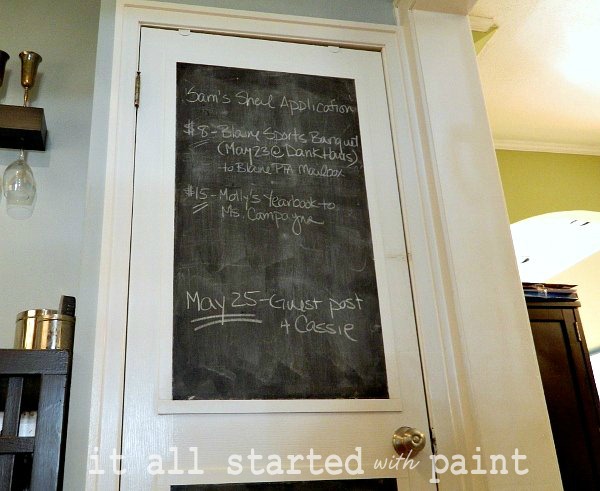 Sam's Shed Application
$8 - Blaine Sports Banquet
(May 23 @ Dank Haus)
to Blaine PTA Mailbox
$15 - Molly's Yearbook to
Ms. Campagna
May 25 - Guest post
4 Cassie
it all started with paint